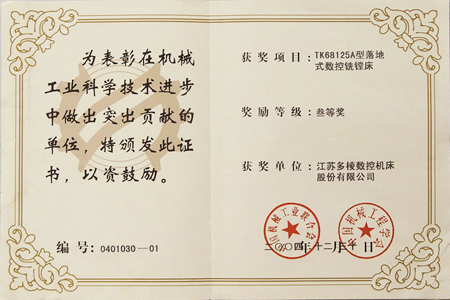 为表彰在机械
工业科学技术进步
中做出突出贡献的
单位，特颁发此证
书，以资鼓励。
编号：0401030—01
获奖项目：TK68125A型落地
式数控铣镗床
奖励等级：叁等奖
获奖单位：江苏多棱数控机床
股份有限公司
中国机械工业联合会
中国机械工程学会
二〇〇四年十二月三十日